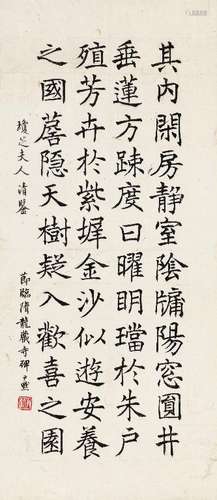 其內閑房静室陰牖陽窓圎井
垂蓮方踈度日曜明璫於朱戶
殖芳卉於紫墀金沙似遊安養
之國蓭隐天樹疑入歡喜之園
瓊之夫人清鑒
節臨隋龍藏寺碑